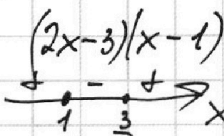 (2x-3)(x-1)
+ - +
1 3 x